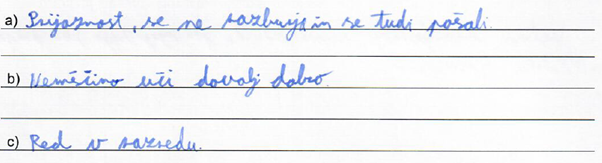 a) Prijaznost, se ne razburja in se tudi pošali.
b) Nemščino uči dovolj dobro.
c) Red v razredu.